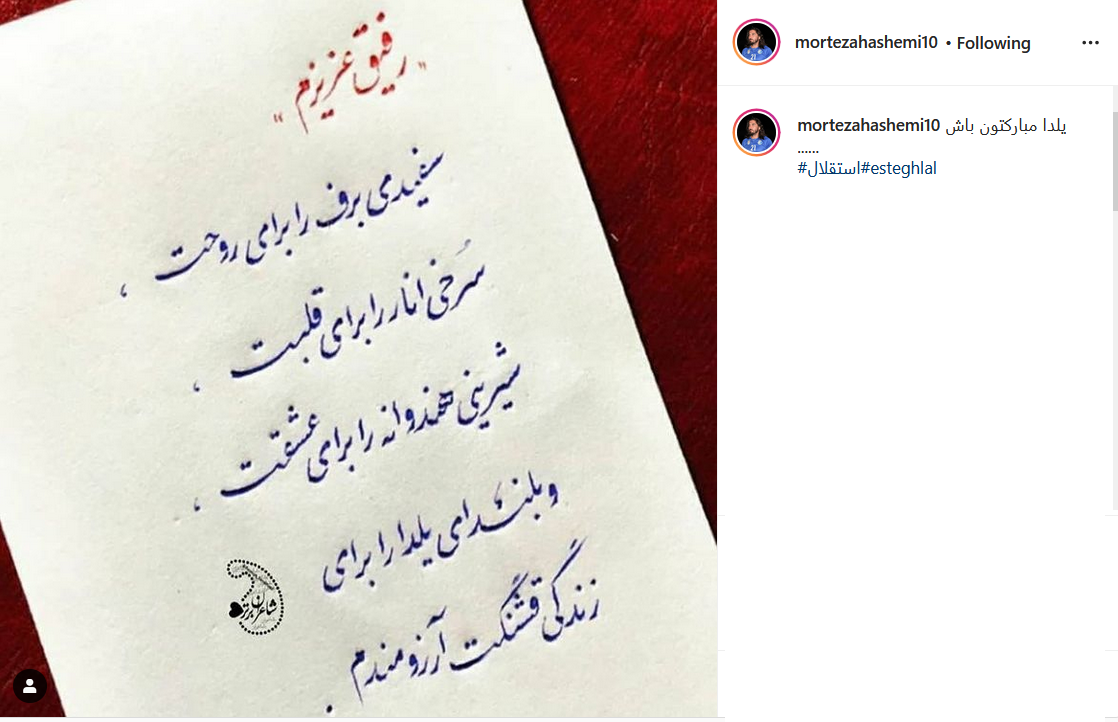 "رفیق عزیزم"
سفیدی برف را برای روحت ،
سُرخی انار را برای قلبت ،
شیرینی هندوانه را برای عشقت ،
و بلندای یلدا را برای
زندگی قشنگت آرزومندم .
mortezahashemi10 • Following
mortezahashemi10 یلدا مبارکتون باش
......
#استقلال#esteghlal